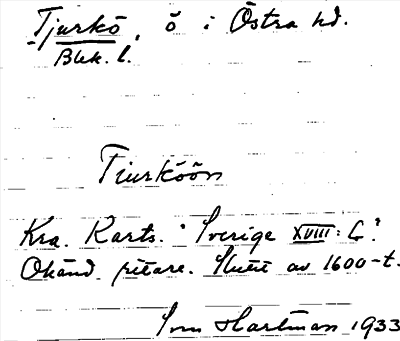 Tjurkö, ö i Östra hd.
Blek. l.
Tiurköön
Kra. Karts. "Sverige XVIII: G".
Okänd ritare. Slutet av 1600-t.
Sven Hartman 1933